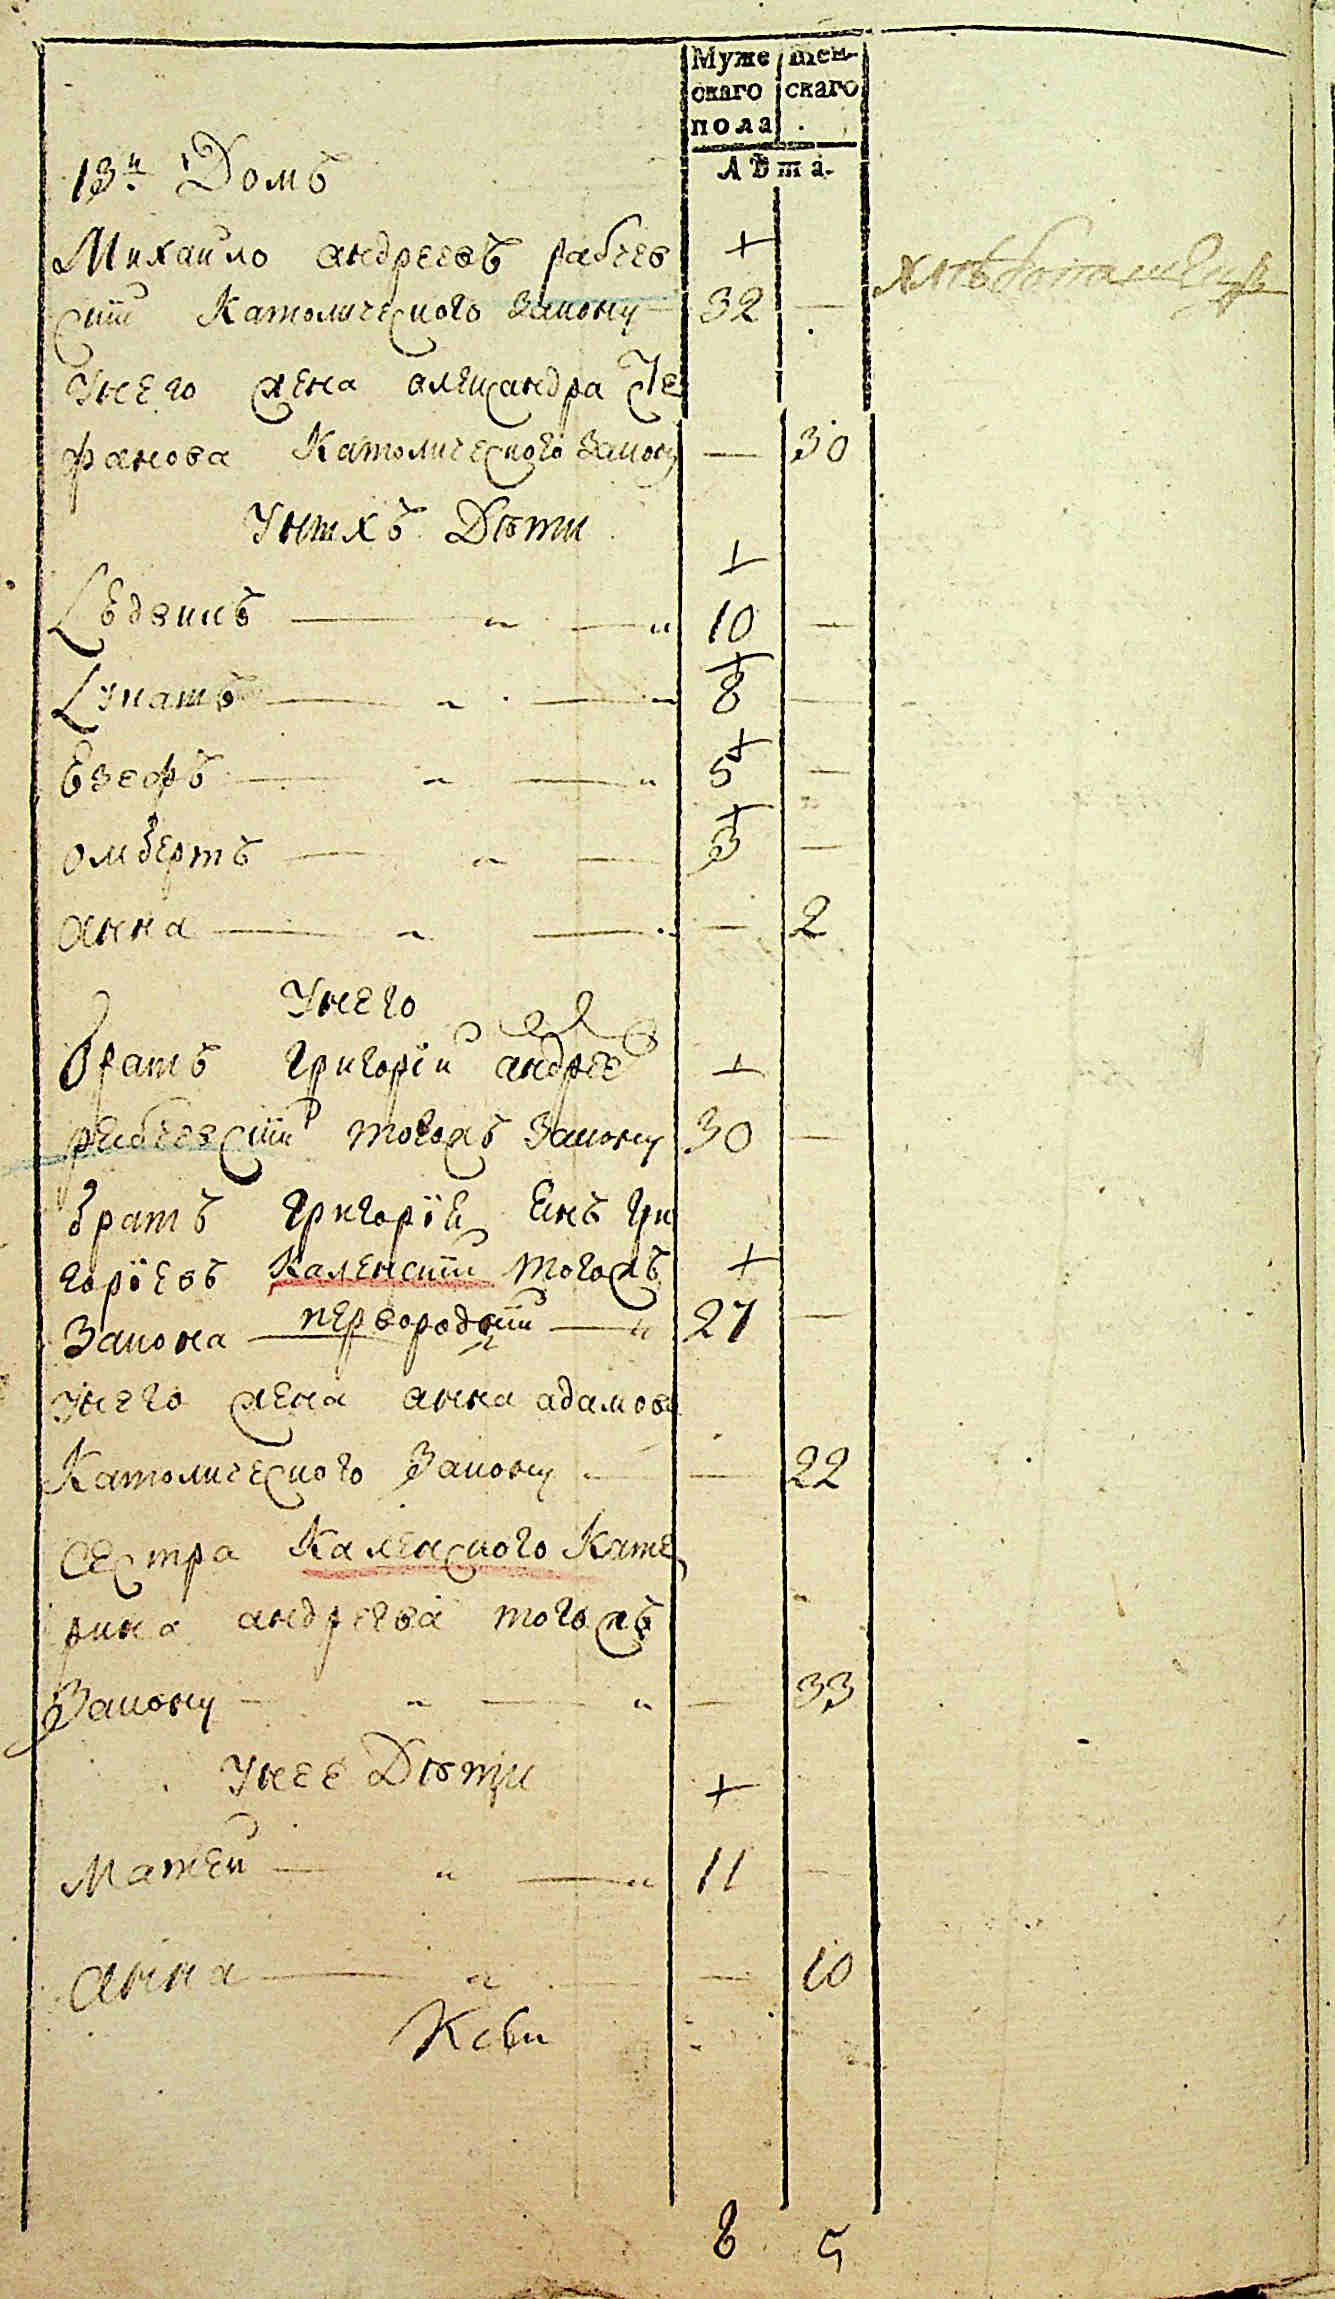 Муже скаго пола
жен- скаго
Лѣта.
13й Домъ
Михайло андреевъ рабчев
скій Католического Закону 32 —
Унего жена александра Сте
фанова Католического Закону — 30
Унихъ Дѣти
Ледвикъ 10 —
Игнатъ 8 —
Езефъ 5 —
омбертъ 3 —
анна — 2
Унего
братъ григорій андрее
рабчевскій тогожъ Закону 30 —
братъ григорїй гри
горїевъ Каленскій тогожъ
Закона первородній 27 —
Унего жена анна адамова
Католического Закону — 22
Сестра Каленского Кате
рина андреева тогожъ
Закону — 33
Унее Дѣти
Матей 11 —
анна — 10
8 5